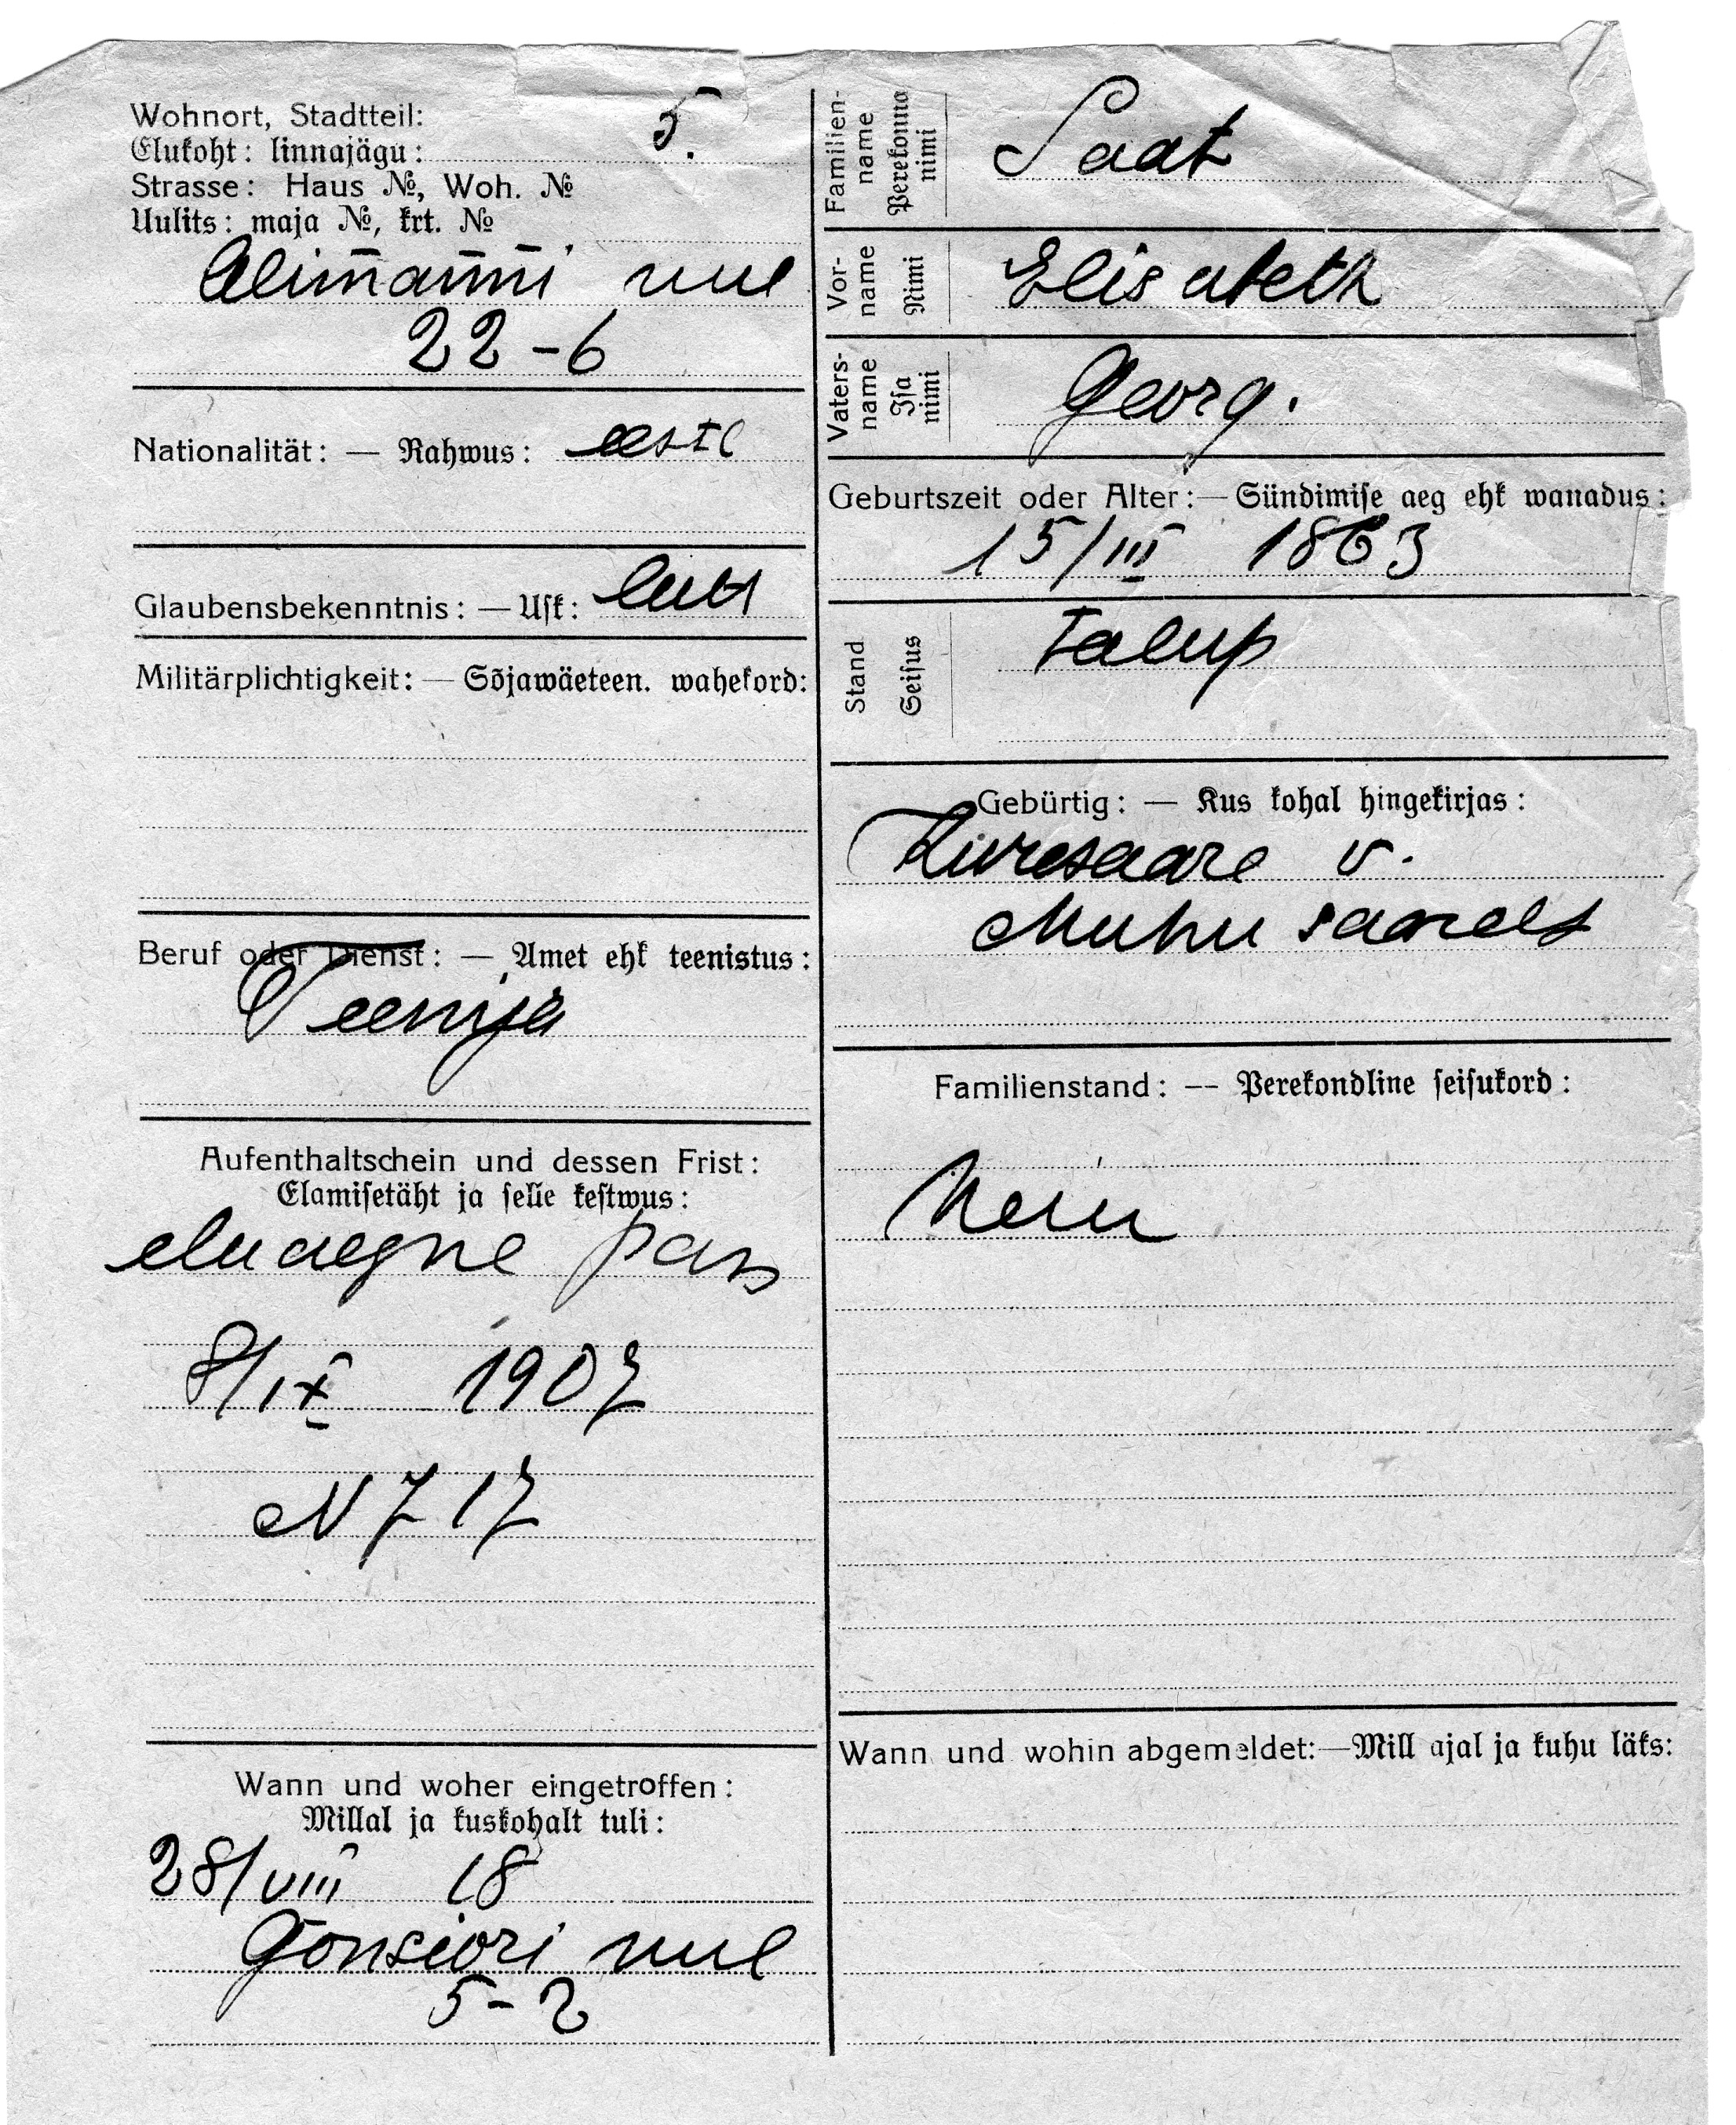 Wohnort, Stadtteil:
Elukoht: linnajägu: 5.
Strasse: Haus №, Woh. №
Uulits: maja №, krt. №
uul
22-6
Nationalität: — Rahwus: eestl
Glaubensbekenntnis: — Usk: lutt
Militärplichtigkeit: — Sõjawäeteen. wahekord:
Beruf oder Dienst: — Amet ehk teenistus:
Teenija
Aufenthaltschein und dessen Frist:
Elamisetäht ja selle kestwus:
eluaegne pass
8/IX 1907
N 717
Wann und woher eingetroffen:
Millal ja kuskohalt tuli:
28/VIII 18
Gonsiori uul
5-2
Familien-
name
Perekonna
nimi
Saat
Vor-
name
Nimi
Elisabeth
Vaters-
name
Isa
nimi
Georg.
Geburtszeit oder Alter: — Sündimise aeg ehk wanadus:
15/III 1863
Stand
Seisus
talup
Gebürtig: — Kus kohal hingekirjas:
Kuresaare v.
Muhu saarelt
Familienstand: -- Perekondline seisukord:
Wann und wohin abgemeldet: — Mill ajal ja kuhu läks: